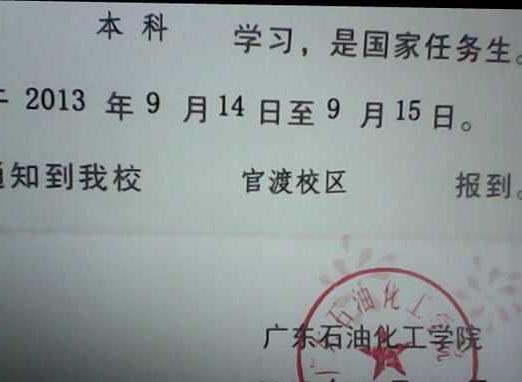 本科 学习，是国家任务生。
2013 年 9 月 14 日至 9 月 15 日。
通知到我校 官渡校区 报到。
广东石油化工学院
广东石油化工学院